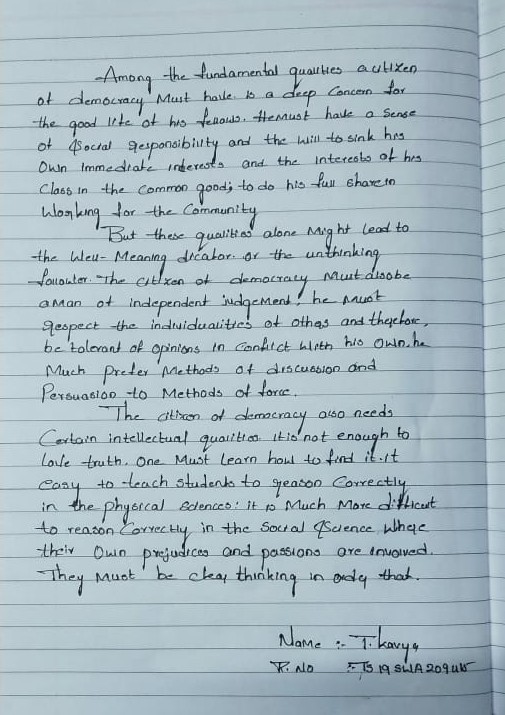 Among the fundamental qualities a citizen
of democracy Must have is a deep Concern for
the good life of his fellows. He must have a sense
of Social responsibility and the will to sink his
Own Immediate interests and the Interests of his
Class in the Common good; to do his full share in
Working for the Community
But these qualities alone Might lead to
the Well-Meaning dicator or the unthinking
follower. The citizen of democracy Must also be
a man of independent judgeMent! he must
respect the individualities of others and therefore,
be tolerant of opinions in Conflict With his own. he
Much Prefer Methods of discussion and
Persuasion to Methods of force.
The citizen of democracy also needs
Certain intellectual qualities it is not enough to
love truth. One Must learn how to find it. it
easy to teach students to reason Correctly
in the physical sciences: it is Much More difficult
to reason Correctly in the Social Science Where
their Own prejudices and passions are involved.
They Must be clear thinking in order that.
Name :- T. kavya
R. No :- TS 19 SWA 209